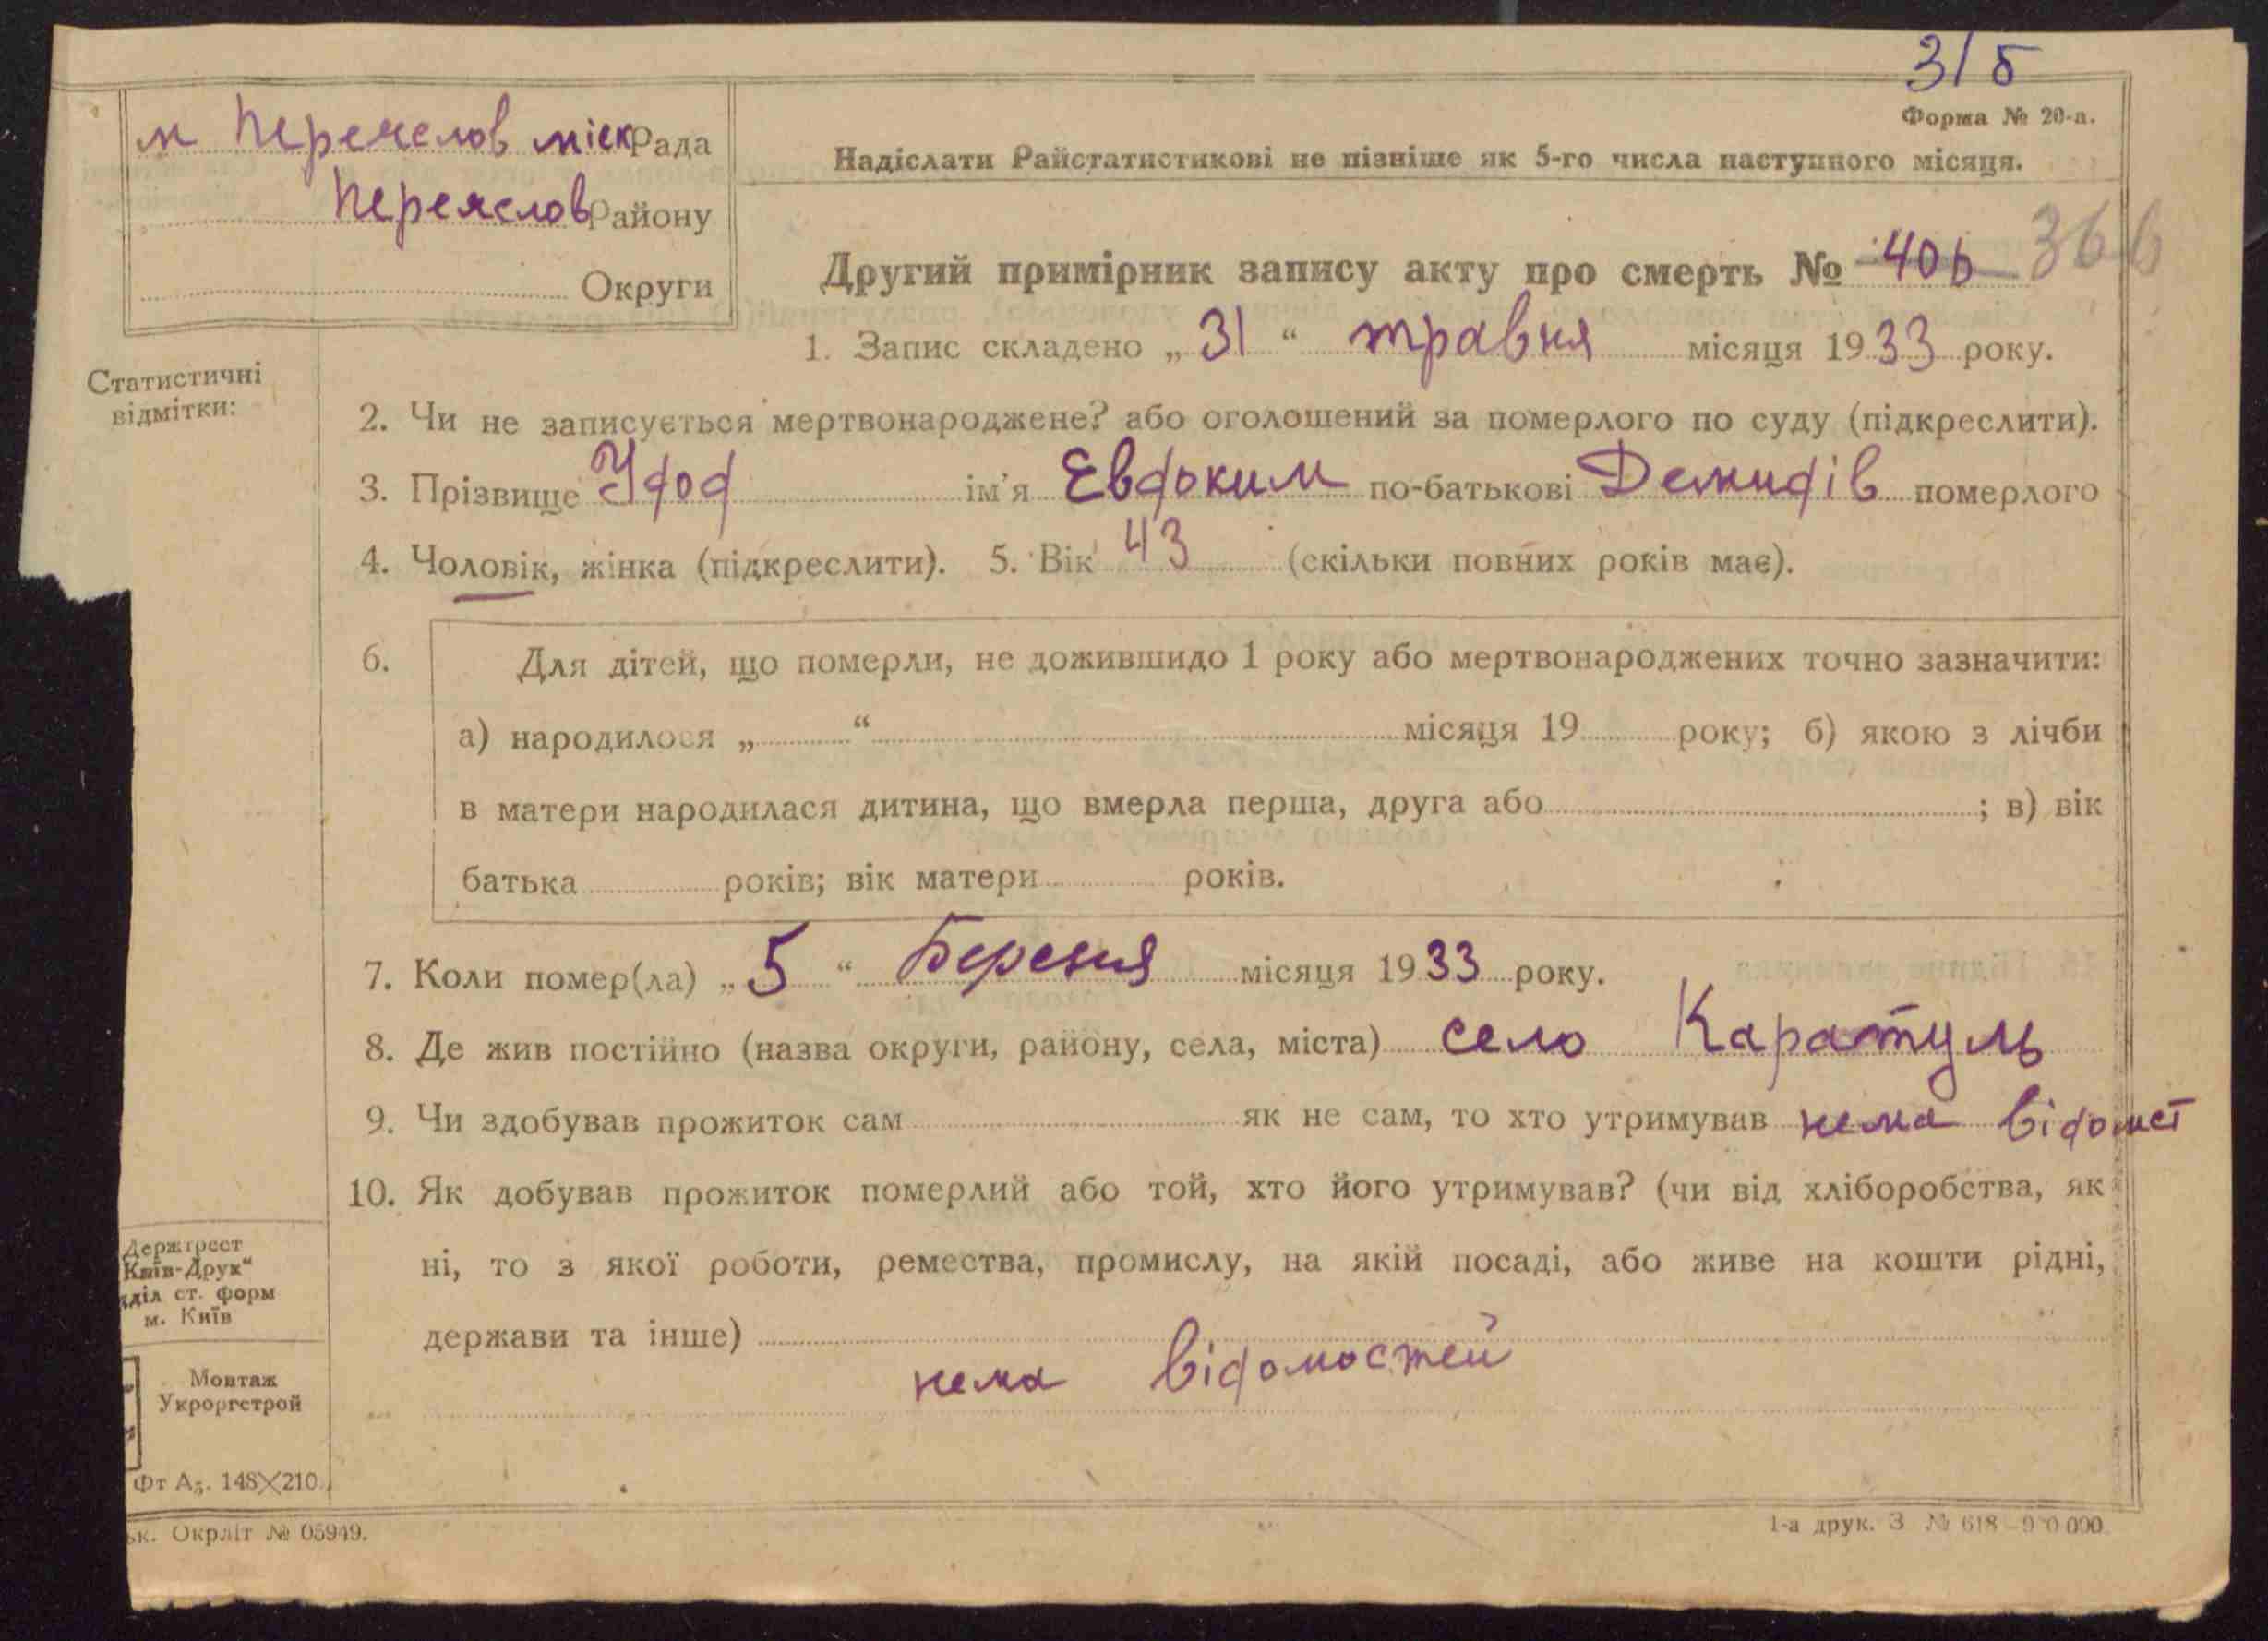 31б
Форма № 20-а.
м Переяслов міськРада
Надіслати Райстатистикові не пізніше як 5-го числа наступного місяця.
ПереясловРайону
Округи
Другий примірник запису акту про смерть № 406 366
1. Запис складено „31“ травня місяця 1933 року.
Статистичні
відмітки:
2. Чи не записується мертвонароджене? або оголошений за померлого по суду (підкреслити).
3. Прізвище Удод ім'я Евдоким по-батькові Демидів померлого
4. Чоловік, жінка (підкреслити). 5. Вік 43 (скільки повних років має).
6. Для дітей, що померли, не дожившидо 1 року або мертвонароджених точно зазначити:
а) народилося „ “ місяця 19 року; б) якою з лічби
в матери народилася дитина, що вмерла перша, друга або ; в) вік
батька років; вік матери років.
7. Коли помер(ла) „5“ Березня місяця 1933 року.
8. Де жив постійно (назва округи, району, села, міста) село Каратуль
9. Чи здобував прожиток сам як не сам, то хто утримував нема відомст
10. Як добував прожиток померлий або той, хто його утримував? (чи від хліборобства, як
ні, то з якої роботи, ремества, промислу, на якій посаді, або живе на кошти рідні,
держави та інше)
нема відомостей
Держтрест
Київ-Друк“
діл ст. форм
м. Київ
Монтаж
Укроргстрой
Фт А5. 148×210.
ьк. Окрліт № 05949.
1-а друк. З № 618